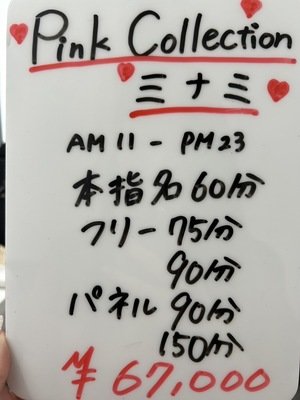 Pink Collection
三十三
AM 11 - PM 23
本指名 60分
フリー 75分
90分
パネル 90分
150分
¥ 67,000